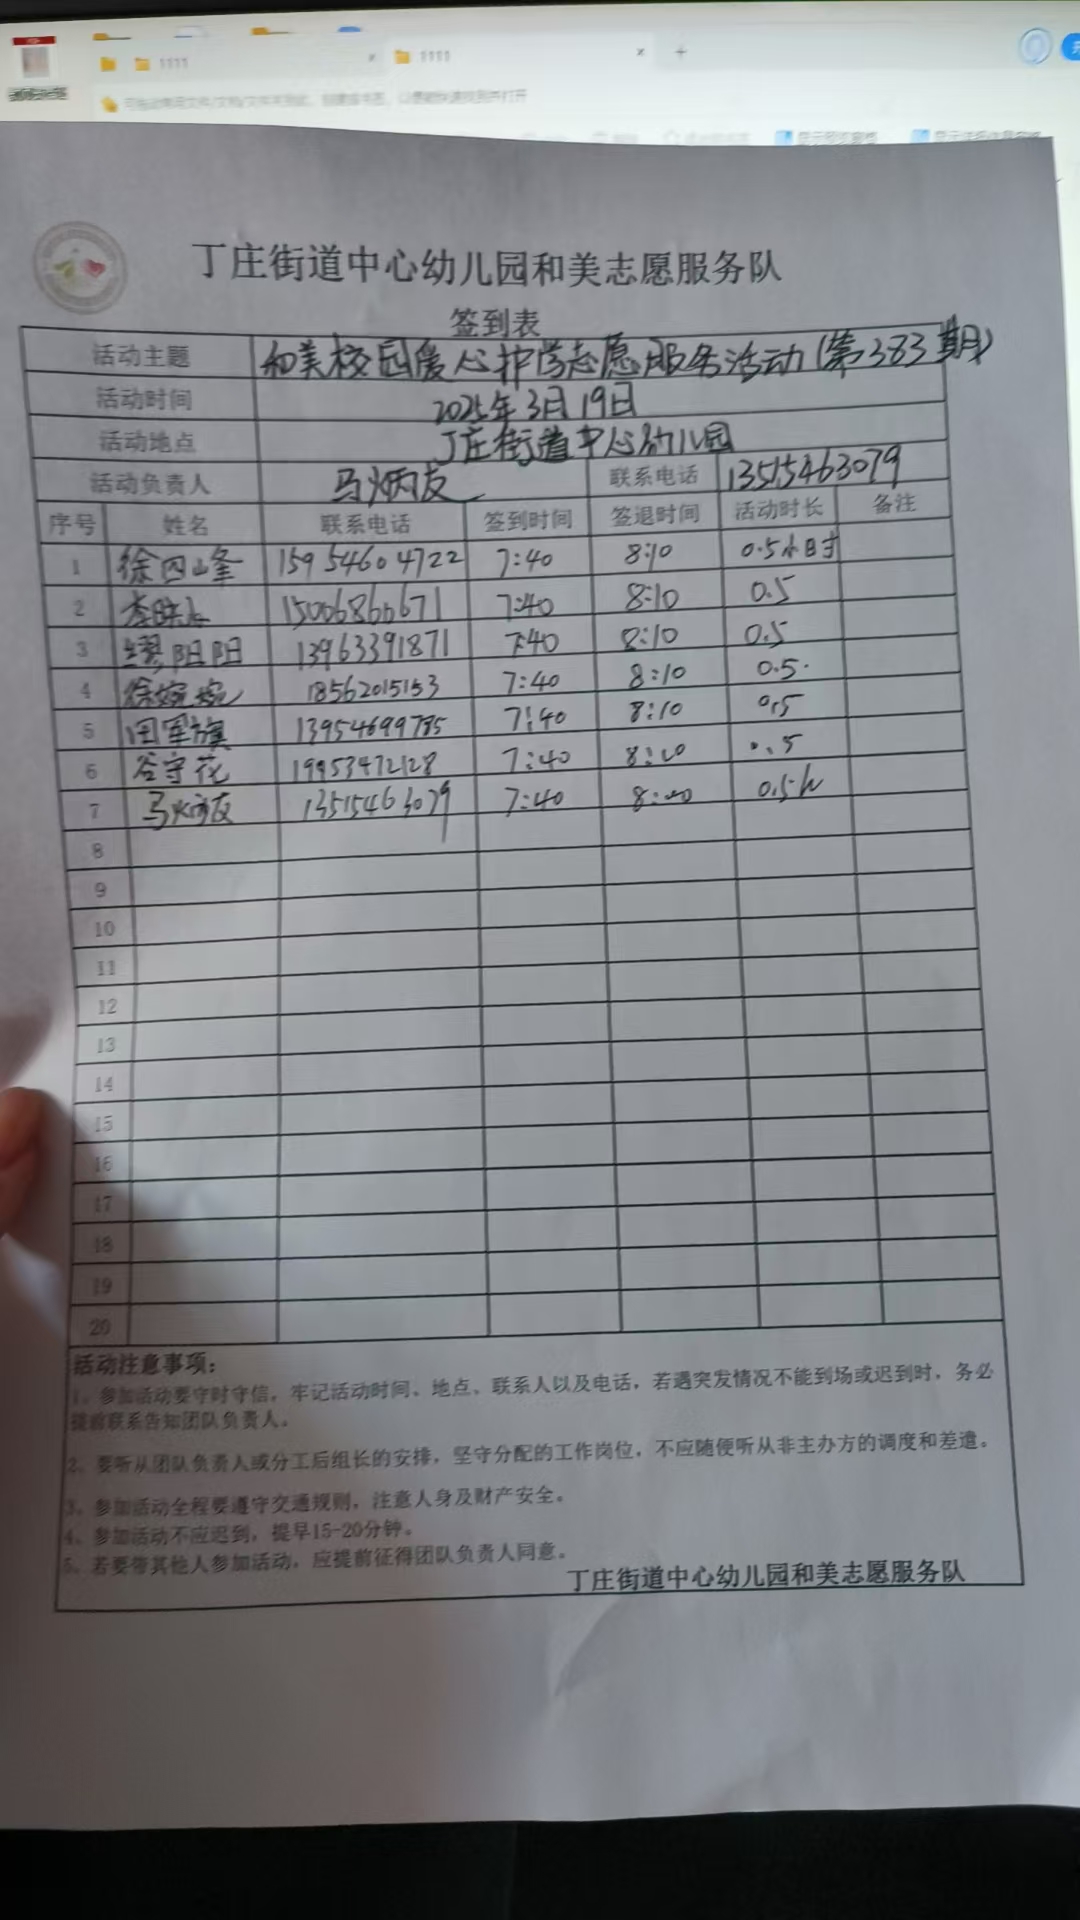 丁庄街道中心幼儿园和美志愿服务队
签到表
活动主题 和美校园爱心护学志愿服务活动(第383期)
活动时间 2025年3月19日
活动地点 丁庄街道中心幼儿园
活动负责人 马炳友 联系电话 13515463079
序号 姓名 联系电话 签到时间 签退时间 活动时长 备注
1 徐四峰 15954604722 7:40 8:10 0.5小时
2 7:40 8:10 0.5
3 阳阳 13963391871 7:40 8:10 0.5
4 徐婉婉 18562015153 7:40 8:10 0.5
5 军旗 13954699785 7:40 8:10 0.5
6 谷守花 19953472128 7:40 0.5
7 马炳友 13515463079 7:40 0.5h
8
9
10
11
12
13
14
15
16
17
18
19
20
活动注意事项:
1、参加活动要守时守信,牢记活动时间、地点、联系人以及电话,若遇突发情况不能到场或迟到时,务必
提前联系告知团队负责人。
2、要听从团队负责人或分工后组长的安排,坚守分配的工作岗位,不应随便听从非主办方的调度和差遣。
3、参加活动全程要遵守交通规则,注意人身及财产安全。
4、参加活动不应迟到,提早15-20分钟。
5、若要带其他人参加活动,应提前征得团队负责人同意。
丁庄街道中心幼儿园和美志愿服务队